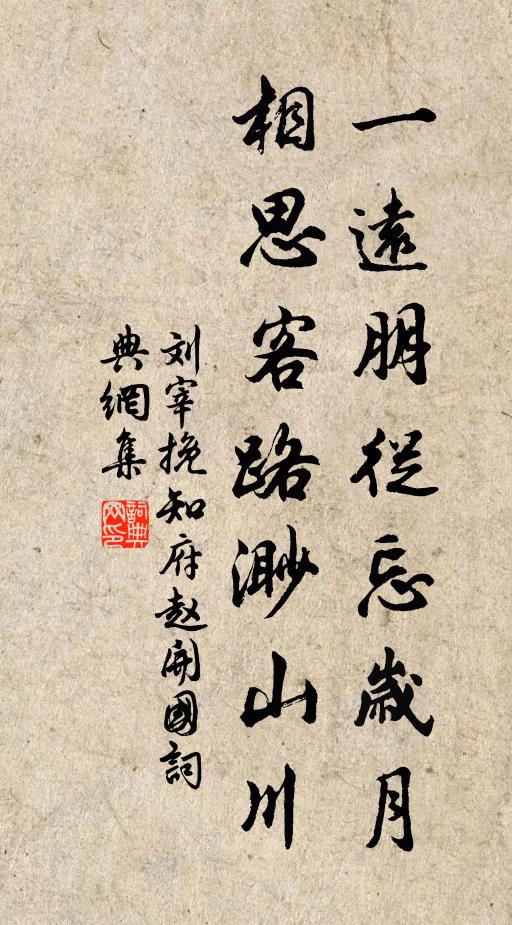 一遠朋從忘歲月
相思客路渺山川
刘宰挽知府赵開國詞
典網集
詞典
网印